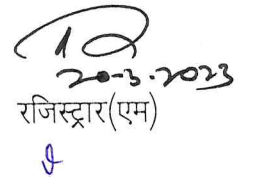 20-3-2023
रजिस्ट्रार(एम)